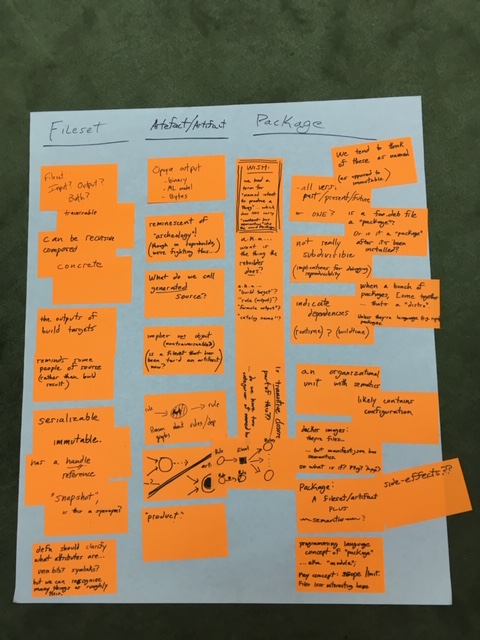 Fileset
Fixed
Input? Output?
Both?
traversable
can be recursive
composed
concrete
the outputs of
build targets
reminds some
people of source
(rather than build
result)
serializable
immutable.
has a handle
reference
"snapshot"
is this a synonym?
defn should clarify
what attributes are...
but we can recognize
many things as "roughly
this."
Artefact/Artifact
Opaque output
- binary
- ML model
- bytes
reminescent of
"archeology"!
(though in reproducible builds,
we're fighting this...)
What do we call
generated
source?
implies not object
(nontraversable?)
(is a fileset that has
been tar'd an artifact now?)
rule
→ rule
Bazan
graphs
don't
rules/dep
art
"product"
Package
WISH:
we had a
term for
"named intent
to produce a
thing"... which
does not carry
a.k.a...
what is
the thing the
rebuilder
does?
a.k.a...
"build target"?
"rule (output)"?
"formula output"?
"catalog name"?
Is transitive closure
part of this??
... do we have two
categories of named in
We tend to think
of these as named
(as opposed to
immutable)
- all vers:
past/present/future
or ONE?
is a foo.deb file
a "package"?
Or is it a "package"
after it's been
installed?
not really
subdivisible
(implications for debugging)
reproducibility
indicate
dependencies
(runtime)? (buildtime)
when a bunch of
packages, come together
... that's a "distro,"
Unless they're language (e.g. npm)
packages.
an organizational
unit with semantics
likely contains
configuration
docker images:
they're files...
... but manifest.json has
semantics
so what is it?
side-effects??
Package:
A fileset/artifact
PLUS
~semantics~?
programming language
concept of "package"
... aka "module";
May concept: scope limit.
Files are interesting here